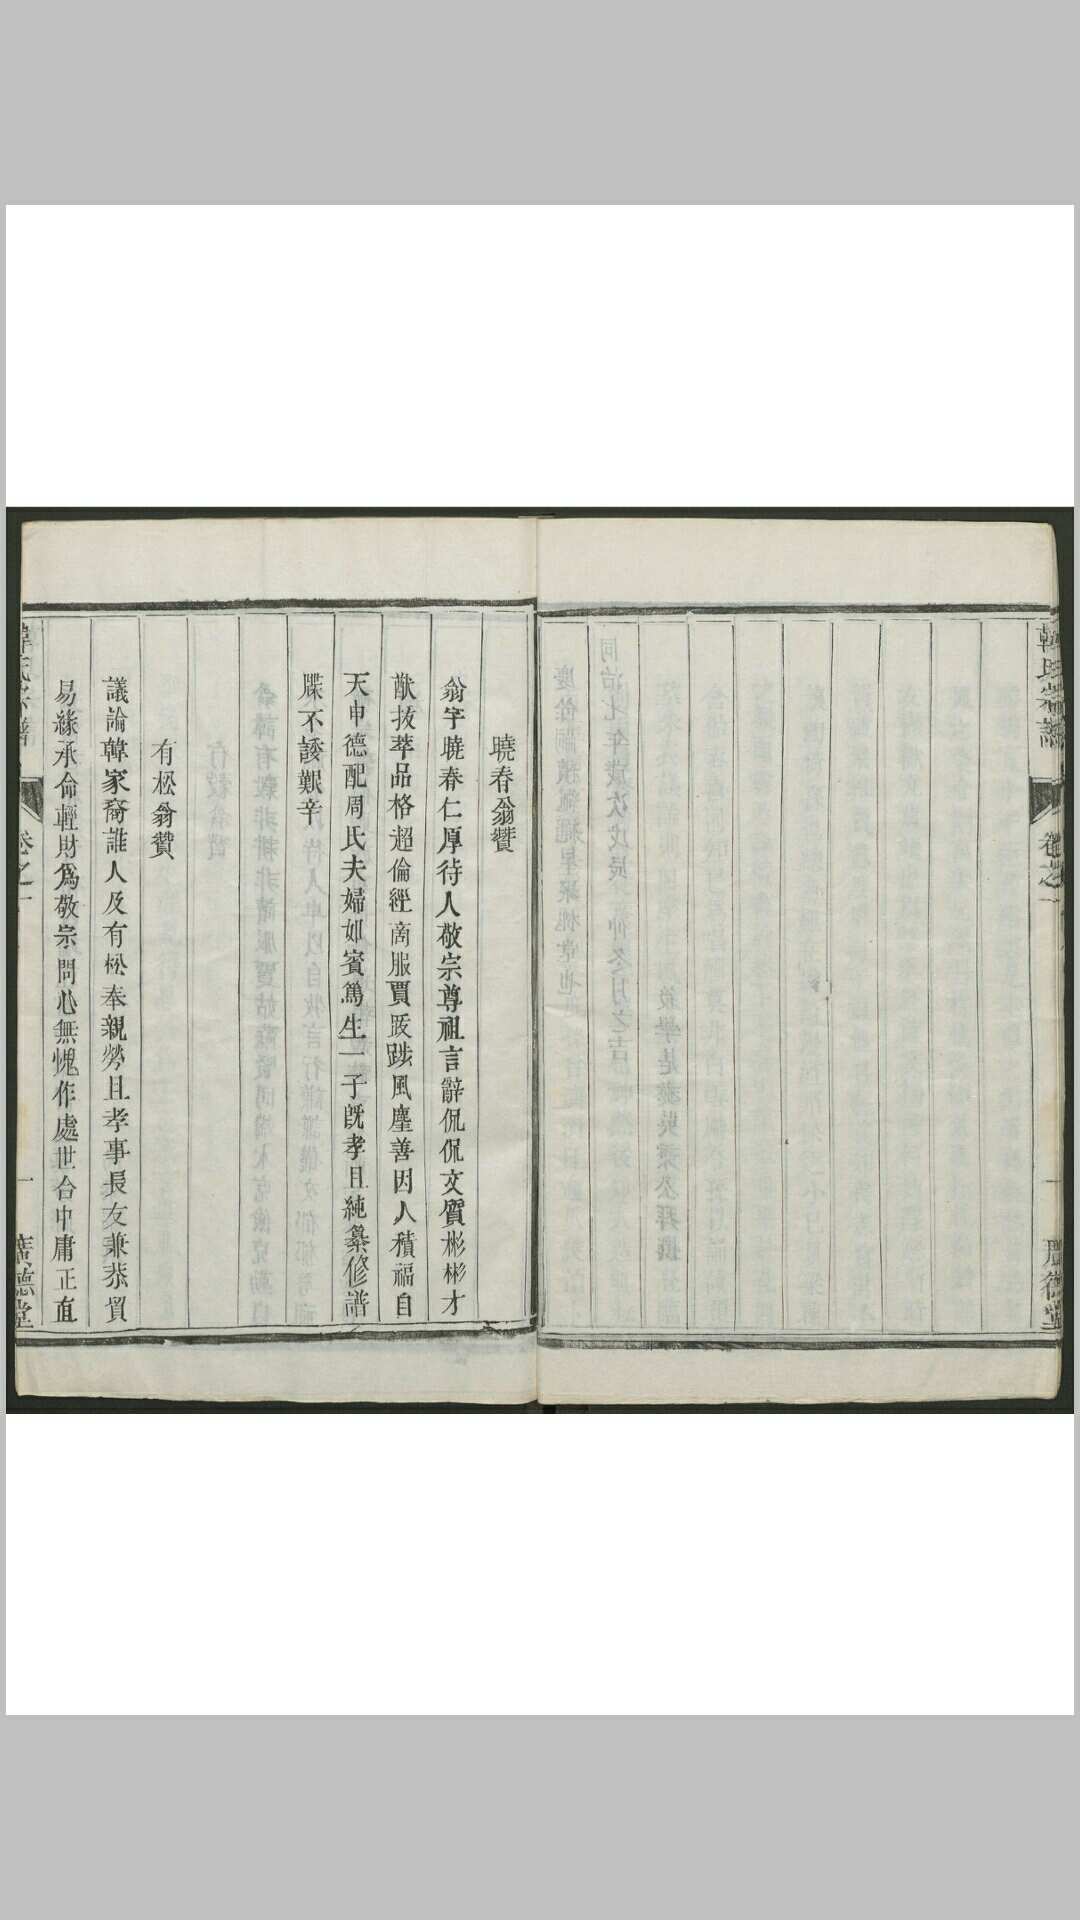 韓氏宗譜
卷之一
一
廣德堂
曉春翁贊
翁字曉春仁厚待人敬宗尊祖言辭侃侃文質彬彬才
猷拔萃品格超倫經商服賈跋踄風塵善因人積福自
天申德配周氏夫婦如賓篤生一子旣孝且純纂修譜
牒不諉艱辛
有松翁贊
議論韓家裔誰人及有松奉親勞且孝事長友兼恭貿
易緣承命輕財爲敬宗問心無愧怍處世合中庸正直
韓氏宗譜
卷之一
一
廣德堂